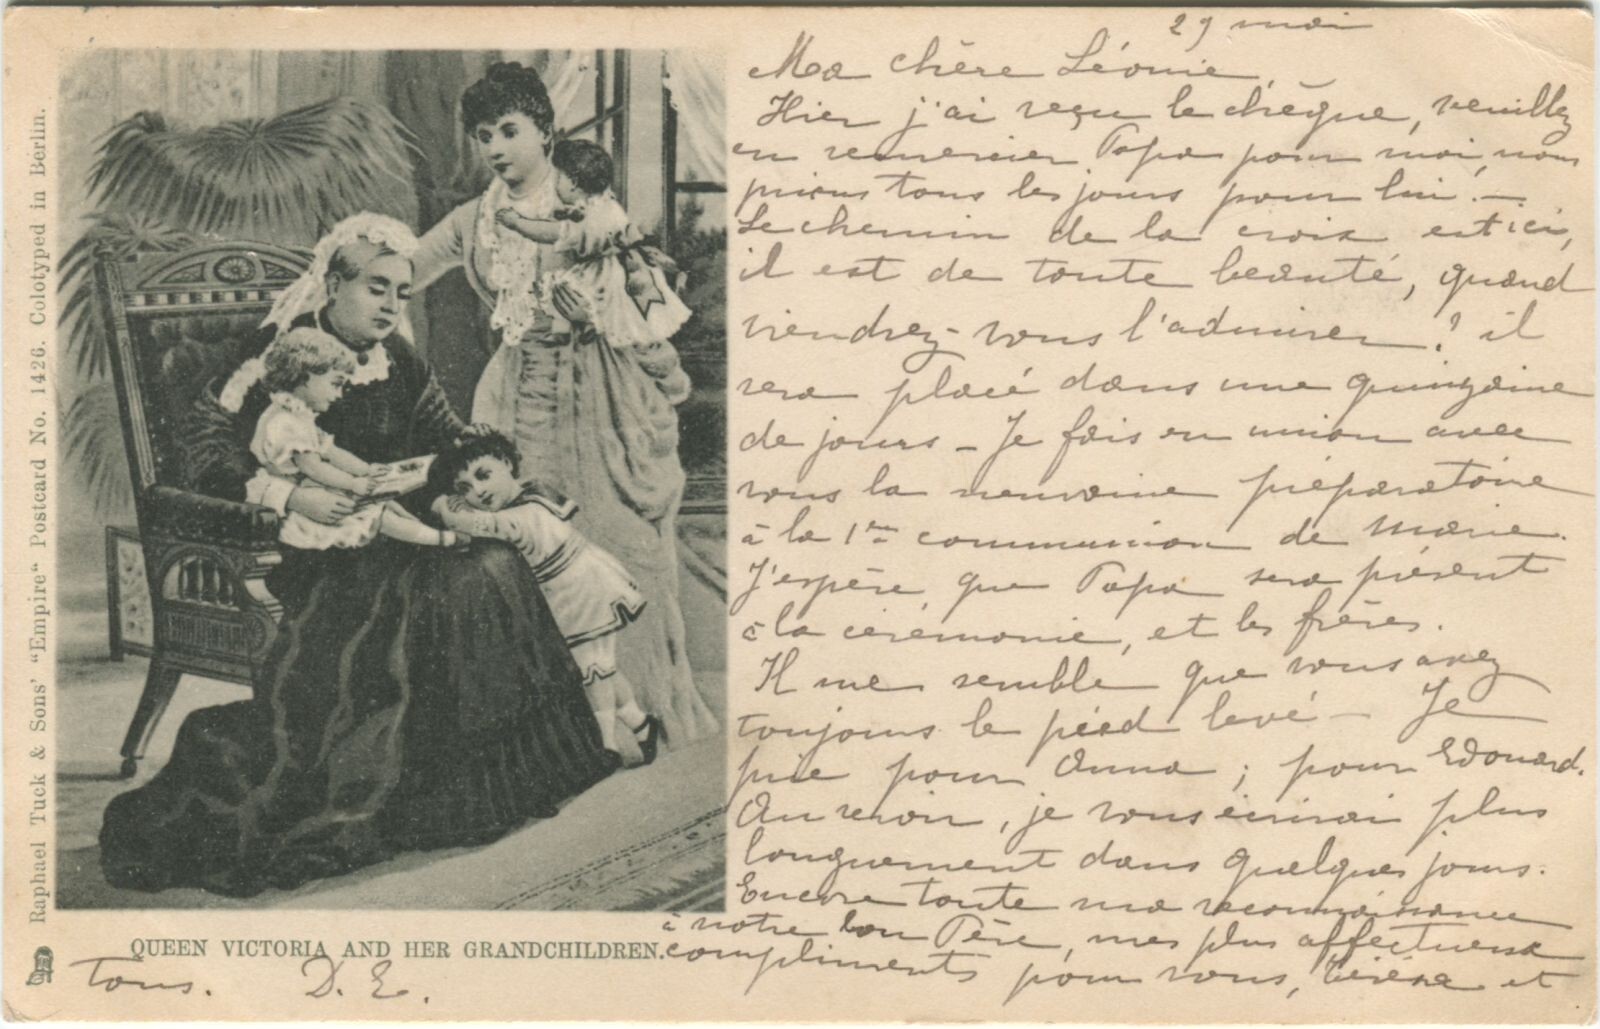 29 mai
Ma chère Léonie,
Hier j'ai reçu le chèque, veuillez
en remercier Papa pour moi, nous
prions tous les jours pour lui. —
Le chemin de la croix est ici,
il est de toute beauté, quand
viendrez-vous l'admirer? il
sera placé dans une quinzaine
de jours — Je fais en union avec
vous la neuvaine préparatoire
à la 1ère communion de Marie.
J'espère que Papa sera présent
à la cérémonie, et les frères.
Il me semble que vous avez
toujours le pied levé — Je
prie pour Anna ; pour Edouard.
Au revoir, je vous écrirai plus
longuement dans quelques jours.
Encore toute ma reconnaissance
à notre bon Père, mes plus affectueux
compliments pour vous, Térèse et
tous. D. E.
QUEEN VICTORIA AND HER GRANDCHILDREN.
Raphael Tuck & Sons' "Empire" Postcard No. 1426. Colotyped in Berlin.